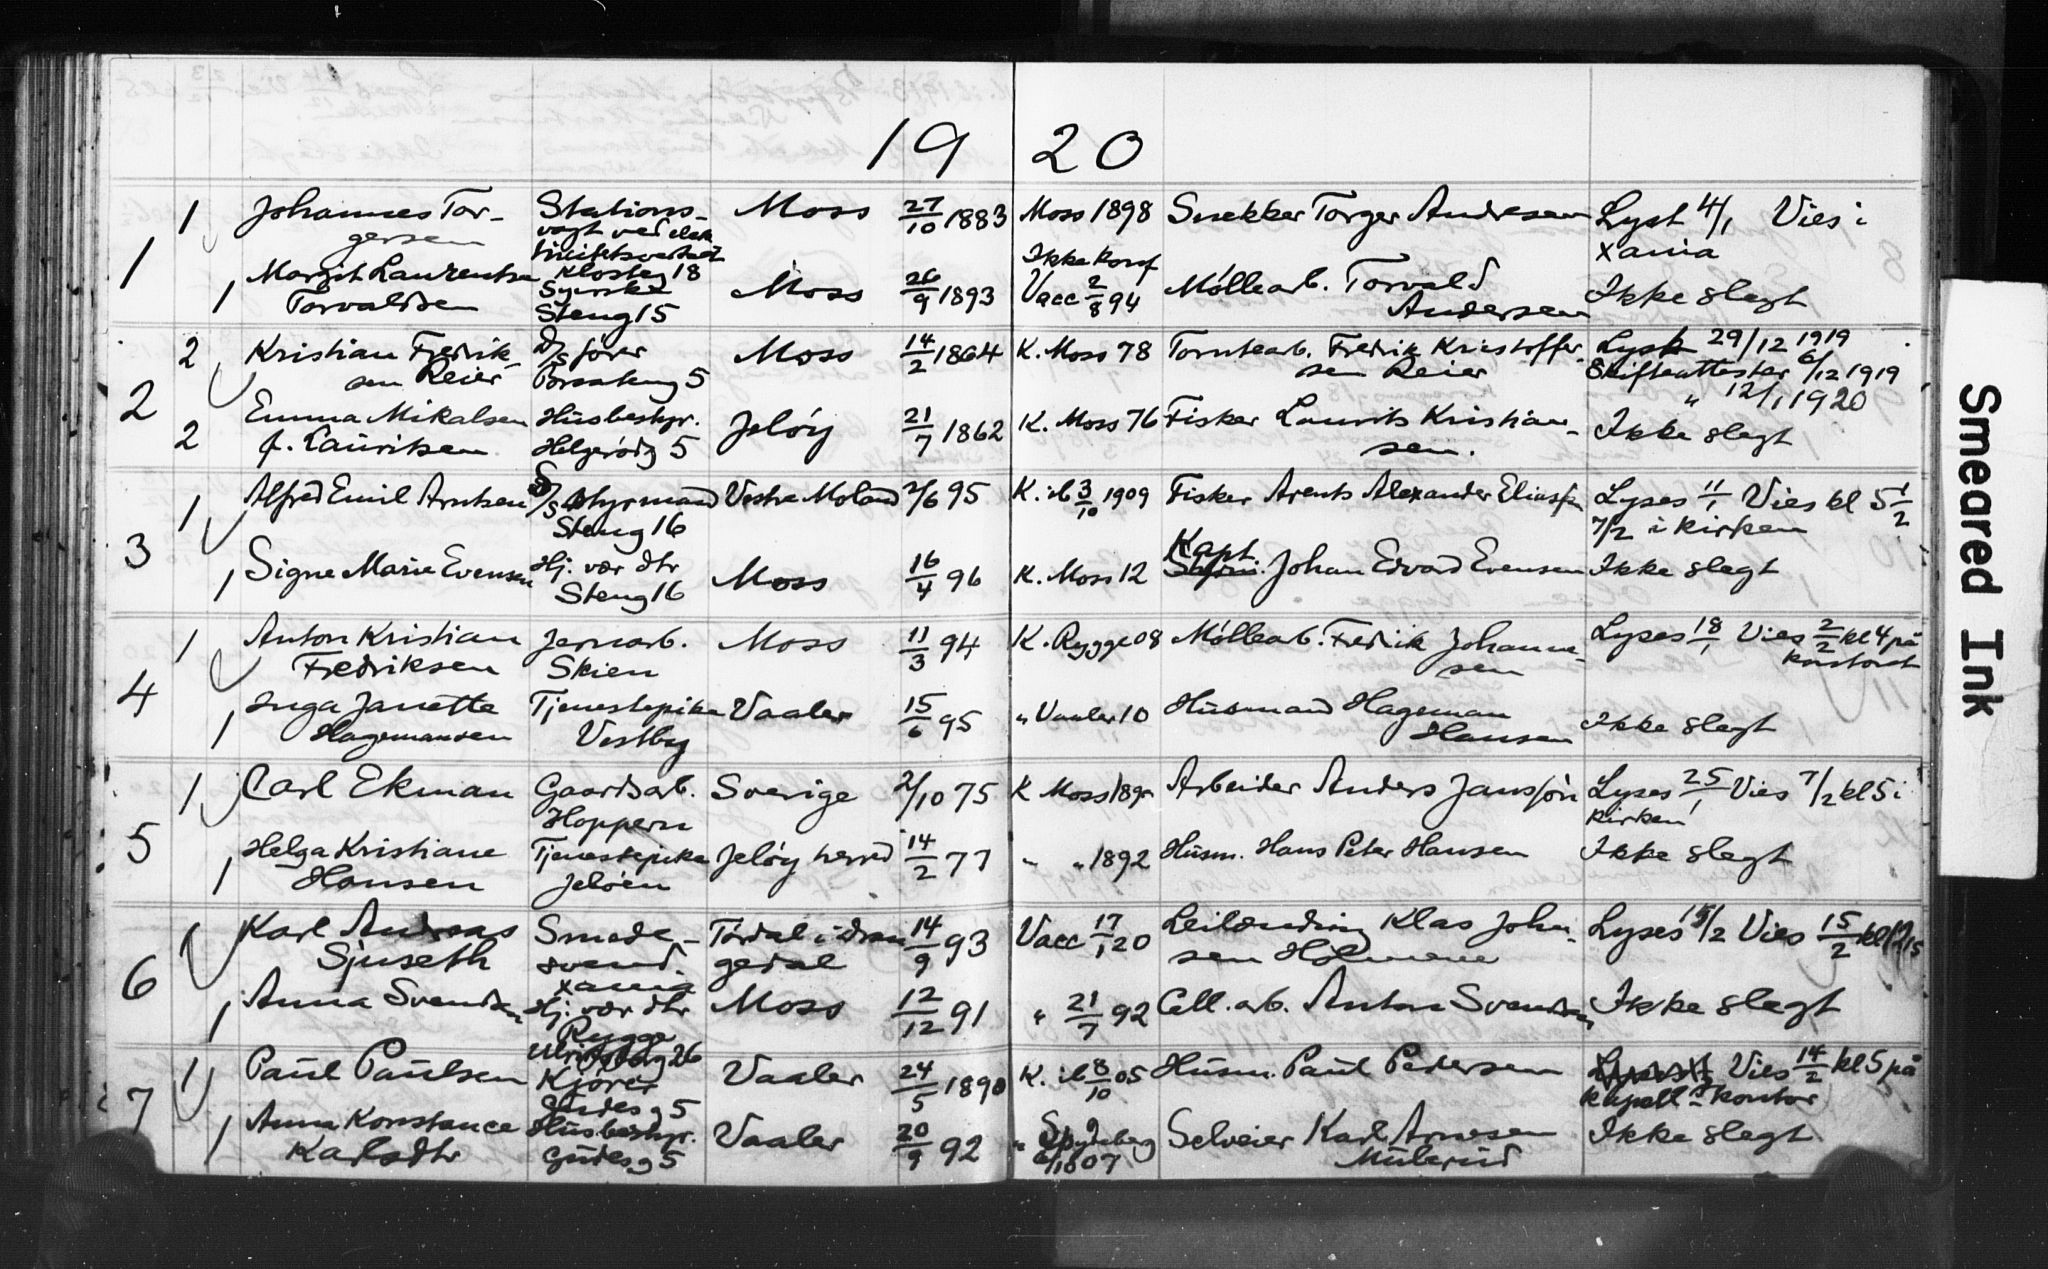 19 20
1
1 Johannes Tor-
gersen
Stations-
vagt ved elek
Klosterg 18
Moss
27/10 1883
Moss 1898
Snekker Torger Andresen
Lyst 4/1 Vies i
Xania
1 Margit Laurentse
Torvaldsen
Syerske
Steng 15
Moss
26/9 1893
Ikke konf
Vacc 2/8 94
Møllearb. Torvald
Andersen
Ikke slegt
2
2 Kristian Fredrik-
sen Reier
D/S fører
5
Moss
14/2 1864
K. Moss 78
Tomtearb. Fredrik Kristoffer-
sen Reier
Lyst 29/12 1919
Skifteattester 6/12 1919
" 12/1 1920
2 Emma Mikalsen
f. Lauritsen
Husbestyr.
Helgerødg 5
Jeløy
21/7 1862
K. Moss 76
Fisker Laurits Kristian-
sen.
Ikke slegt
3
1 Alfred Emil Arntsen
D/S styrmand
Steng 16
Vestre Moland
2/6 95
K. ib 3/10 1909
Fisker Arents Alexander Eliassn
Lyses 11/1 Vies kl 5 1/2
7/2 i kirken
1 Signe Marie Evensen
Hj. vær dtr
Steng 16
Moss
16/4 96
K. Moss 12
Kapt
Johan Edvard Evensen
Ikke slegt
4
1 Anton Kristian
Fredriksen
Jernarb.
Skien
Moss
11/3 94
K. Rygge 08
Møllearb. Fredrik Johanne-
sen
Lyses 18/1 Vies 2/2 kl 4 på
kontoret
1 Inga Janette
Hagemansen
Tjenestepike
Vestby
Vaaler
15/6 95
" Vaaler 10
Husmand Hageman
Hansen
Ikke slegt
5
1 Carl Ekman
Gaardsarb.
Hoppern
Sverige
2/10 75
K Moss
Arbeider Anders Jansson
Lyses 25/1 Vies 7/2 kl 5 i
kirken
1 Helga Kristiane
Hansen
Tjenestepike
Jeløen
Jeløy herred
14/2 77
" " 1892
Husm. Hans Peter Hansen
Ikke slegt
6
1 Karl Andreas
Sjuseth
Smede-
svend.
Xania
Tørdal i Dran
gedal
14/9 93
Vacc 17/1 20
Leilænding Klas John-
sen Holmene
Lyses 15/2 Vies 15/2 kl
1 Anna Svendsen
Hj. vær dtr
Rygge
Moss
12/12 91
" 21/7 92
Cell. arb. Anton Svendsen
Ikke slegt
7
1 Paul Paulsen
26
Kjører
Gudesg 5
Vaaler
24/5 1890
K. ib 8/10 05
Husm. Paul Pedersen
Vies 14/2 kl 5 på
kapell's kontor
1 Anna Konstance
Karlsdtr
Husbestyr.
Gudesg 5
Vaaler
20/9 92
" Spydeberg
07
Selveier Karl Arnesen
Mulerud
Ikke slegt
Smeared Ink